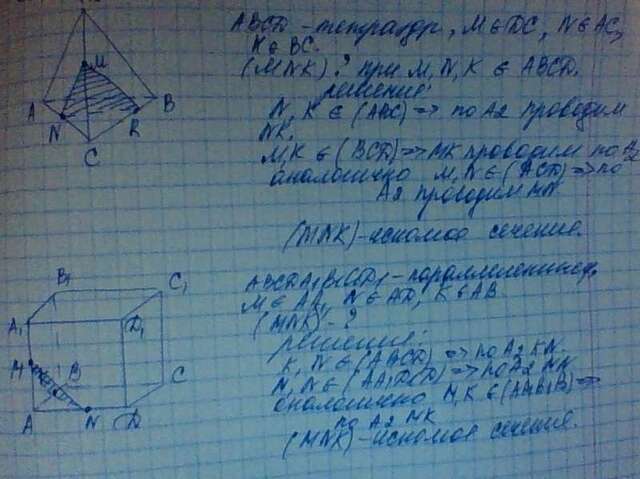 ABCD - тетраэдр, M∈DC, N∈AC,
K∈BC.
(MNK)? при M, N, K ∈ ABCD.
решение:
N, K ∈ (ABC) => по A2 проводим
NK.
M, K ∈ (BCD) => MK проводим по A2
аналогично M, N ∈ (ACD) => по
A2 проводим MN
(MNK) - искомое сечение.
M
A
B
N
K
C
ABCDA1B1C1D1 - параллелепипед,
M∈AA1, N∈AD, K∈AB
(MNK) - ?
решение:
K, N ∈ (ABCD) => по A2 KN.
M, N ∈ (AA1D1D) => по A2 MN
аналогично M, K ∈ (AA1B1B) =>
по A2 MK
(MNK) - искомое сечение.
B1
C1
A1
D1
M
B
C
A
N
D